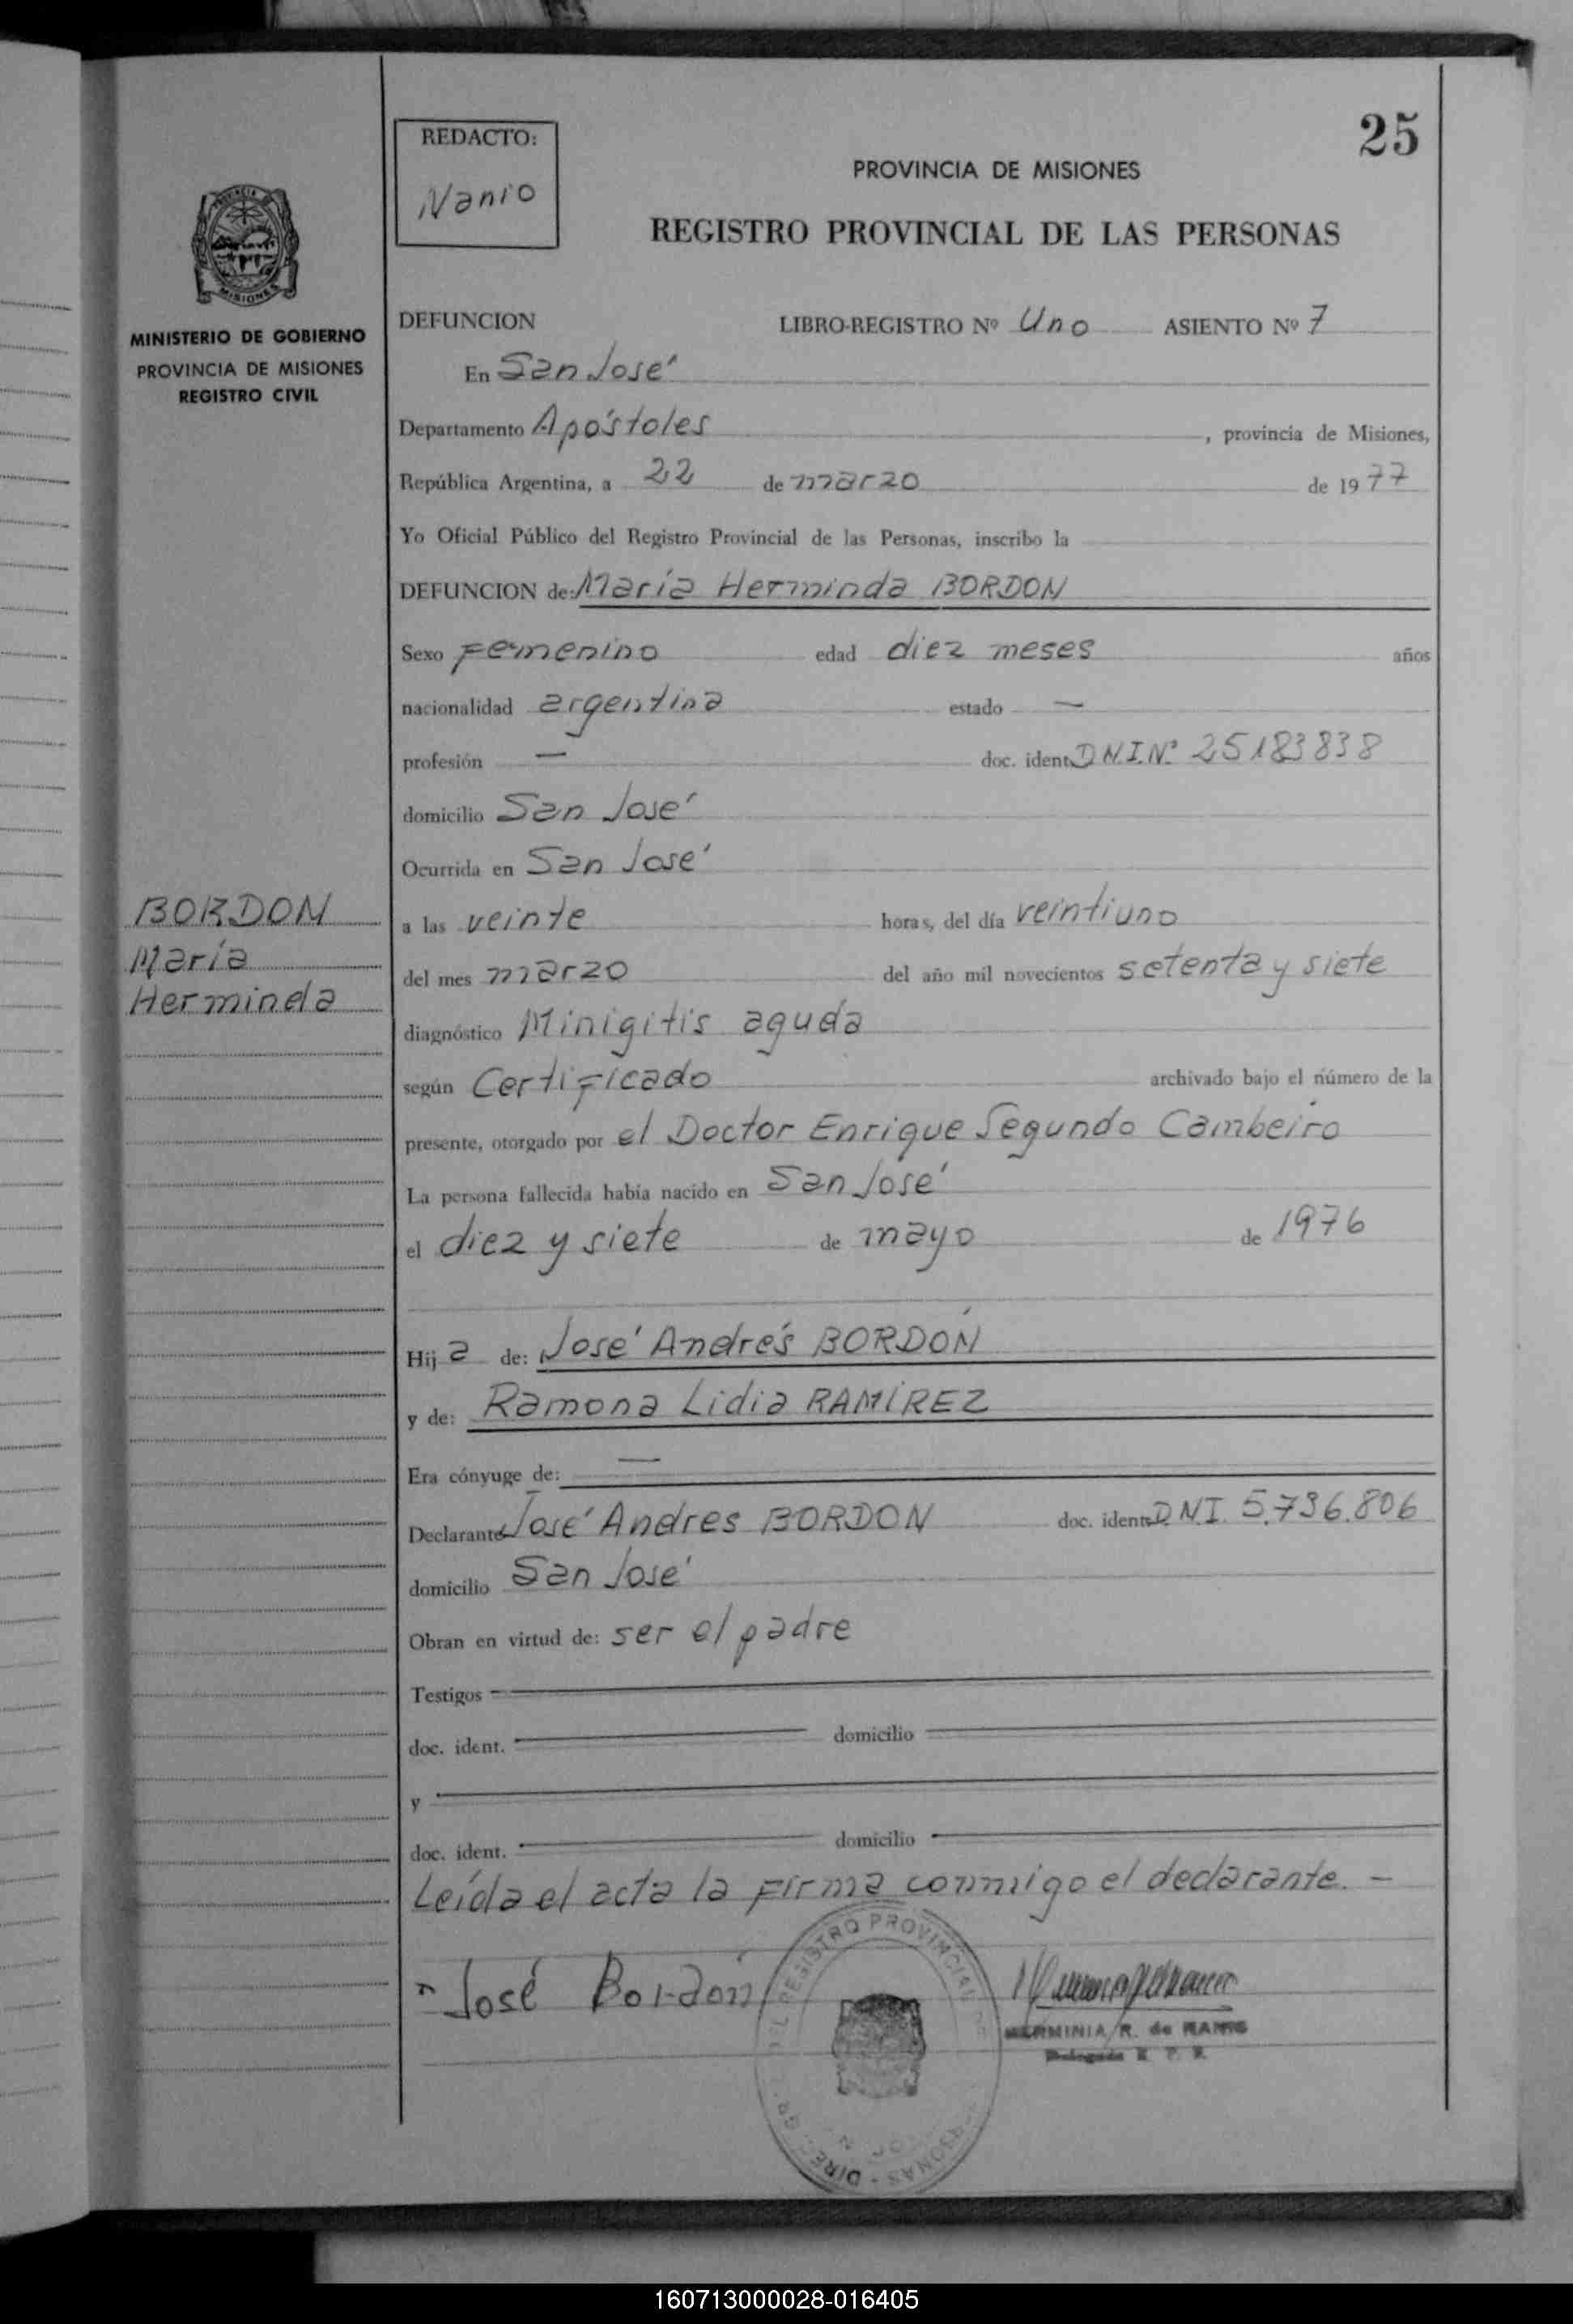 25
REDACTO:
Nanio
PROVINCIA DE MISIONES
REGISTRO PROVINCIAL DE LAS PERSONAS
PROVINCIA DE
MISIONES
MINISTERIO DE GOBIERNO
PROVINCIA DE MISIONES
REGISTRO CIVIL
DEFUNCION LIBRO-REGISTRO Nº Uno ASIENTO Nº 7
En San José
Departamento Apóstoles , provincia de Misiones,
República Argentina, a 22 de marzo de 1977
Yo Oficial Público del Registro Provincial de las Personas, inscribo la
DEFUNCION de: María Herminda BORDON
Sexo Femenino edad diez meses años
nacionalidad argentina estado —
profesión — doc. ident. D.N.I.Nº 25183838
domicilio San José
Ocurrida en San José
BORDON
María
Herminda
a las veinte horas, del día veintiuno
del mes marzo del año mil novecientos setenta y siete
diagnóstico Minigitis aguda
según Certificado archivado bajo el número de la
presente, otorgado por el Doctor Enrique Segundo Cambeiro
La persona fallecida había nacido en San José
el diez y siete de mayo de 1976
Hija de: José Andrés BORDÓN
y de: Ramona Lidia RAMÍREZ
Era cónyuge de: —
Declarante José Andres BORDON doc. ident. D.N.I. 5.736.806
domicilio San José
Obran en virtud de: ser el padre
Testigos
doc. ident. domicilio
y
doc. ident. domicilio
Leída el acta la firma conmigo el declarante. -
José Bordón
REGISTRO PROVINCIAL
HERMINIA R. de
160713000028-016405